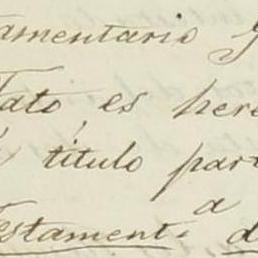 amentario
tato, es here
título part
estament.ª d